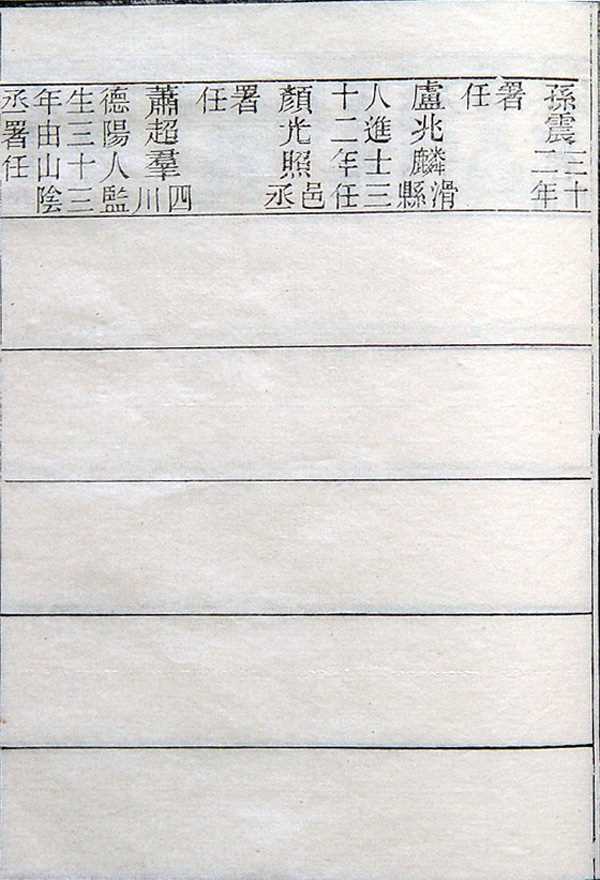 孫震三十二年
署
任
盧兆麟滑縣
人進士三
十二年任
顏光照邑丞
署
任
蕭超羣四川
德陽人監
生三十三
年由山陰
丞署任